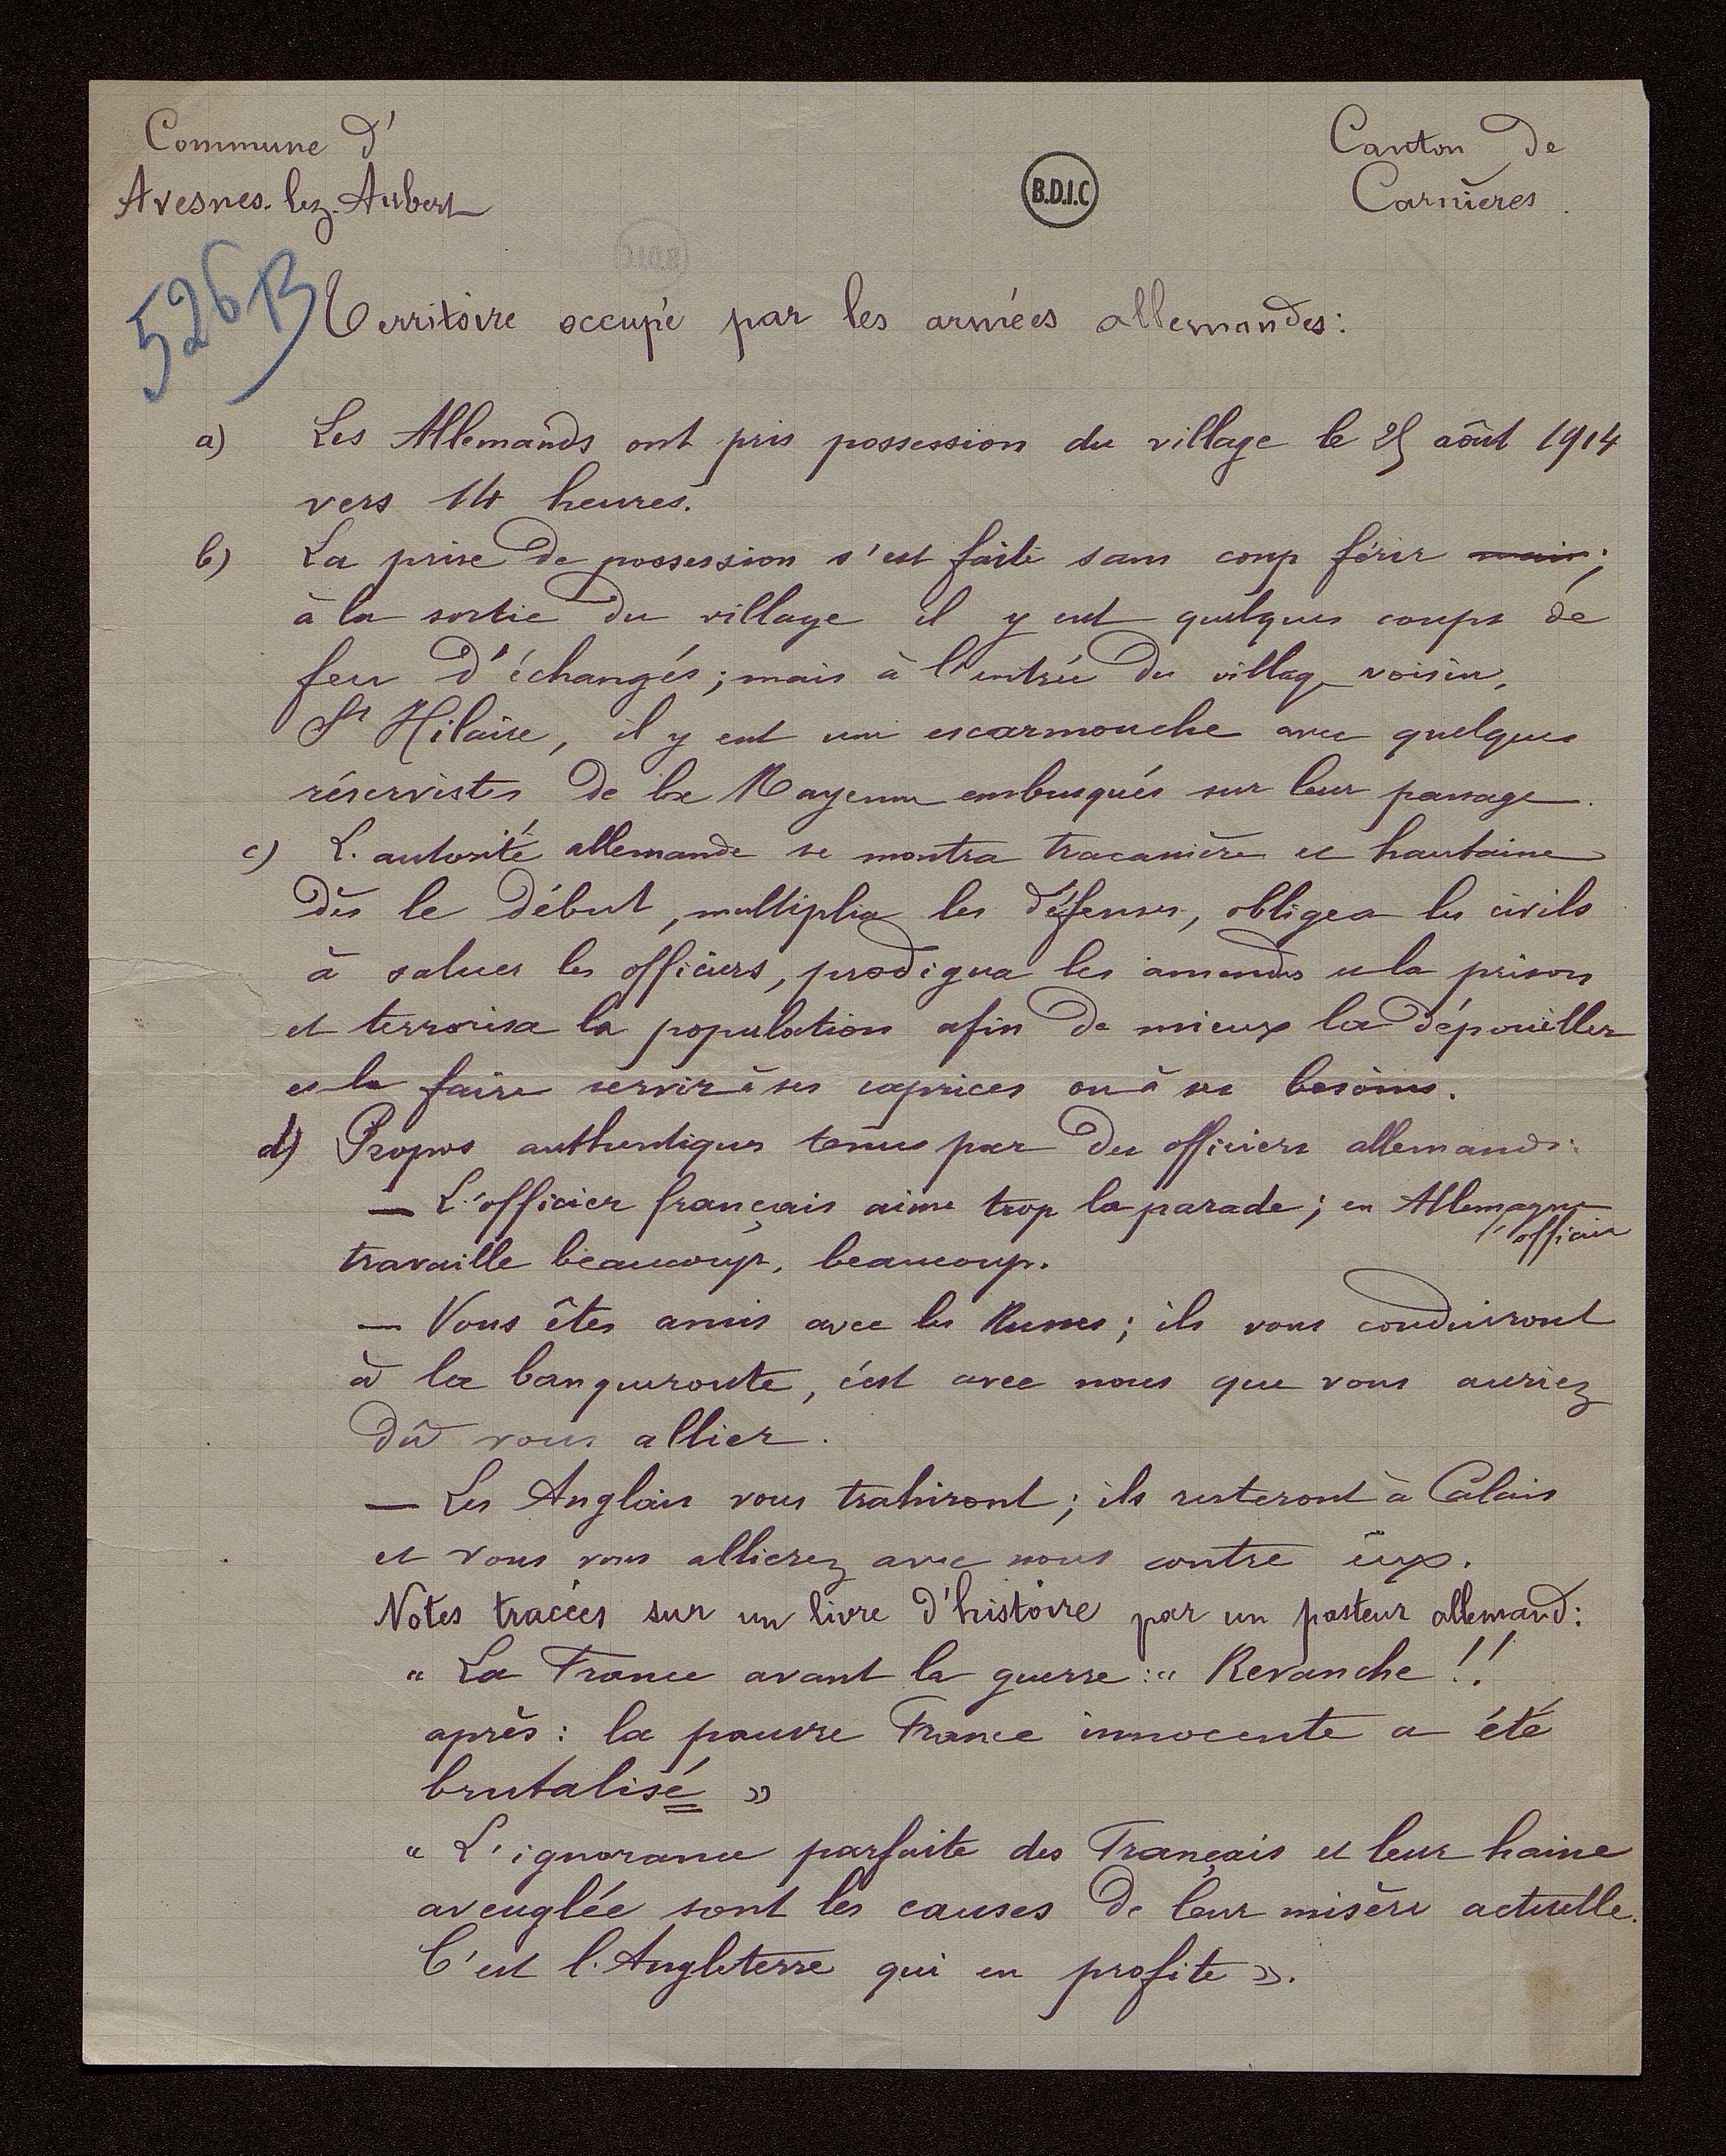 Commune d'
Avesnes-lez-Aubert
Canton de
Carnières.
B.D.I.C
526 B
Territoire occupé par les armées allemandes:
a) Les Allemands ont pris possession du village le 25 août 1914
vers 14 heures.
b) La prise de possession s'est faite sans coup férir mais;
à la sortie du village il y eut quelques coups de
feu d'échangés; mais à l'entrée du village voisin,
St Hilaire, il y eut une escarmouche avec quelques
réservistes de la Mayenne embusqués sur leur passage.
c) L'autorité allemande se montra tracassière et hautaine
dès le début, multiplia les défenses, obligea les civils
à saluer les officiers, prodigua les amendes et la prison
et terrorisa la population afin de mieux la dépouiller
et la faire servir à ses caprices ou à ses besoins.
d) Propos authentiques tenus par des officiers allemands:
— L'officier français aime trop la parade; en Allemagne
l'officier
travaille beaucoup, beaucoup.
— Vous êtes amis avec les Russes; ils vous conduiront
à la banqueroute, c'est avec nous que vous auriez
dû vous allier.
— Les Anglais vous trahiront; ils resteront à Calais
et vous vous allierez avec nous contre eux.
Notes tracées sur un livre d'histoire par un pasteur allemand:
" La France avant la guerre: " Revanche!!
après: la pauvre France innocente a été
brutalisé »
" L'ignorance parfaite des Français et leur haine
aveuglée sont les causes de leur misère actuelle.
C'est l'Angleterre qui en profite ».